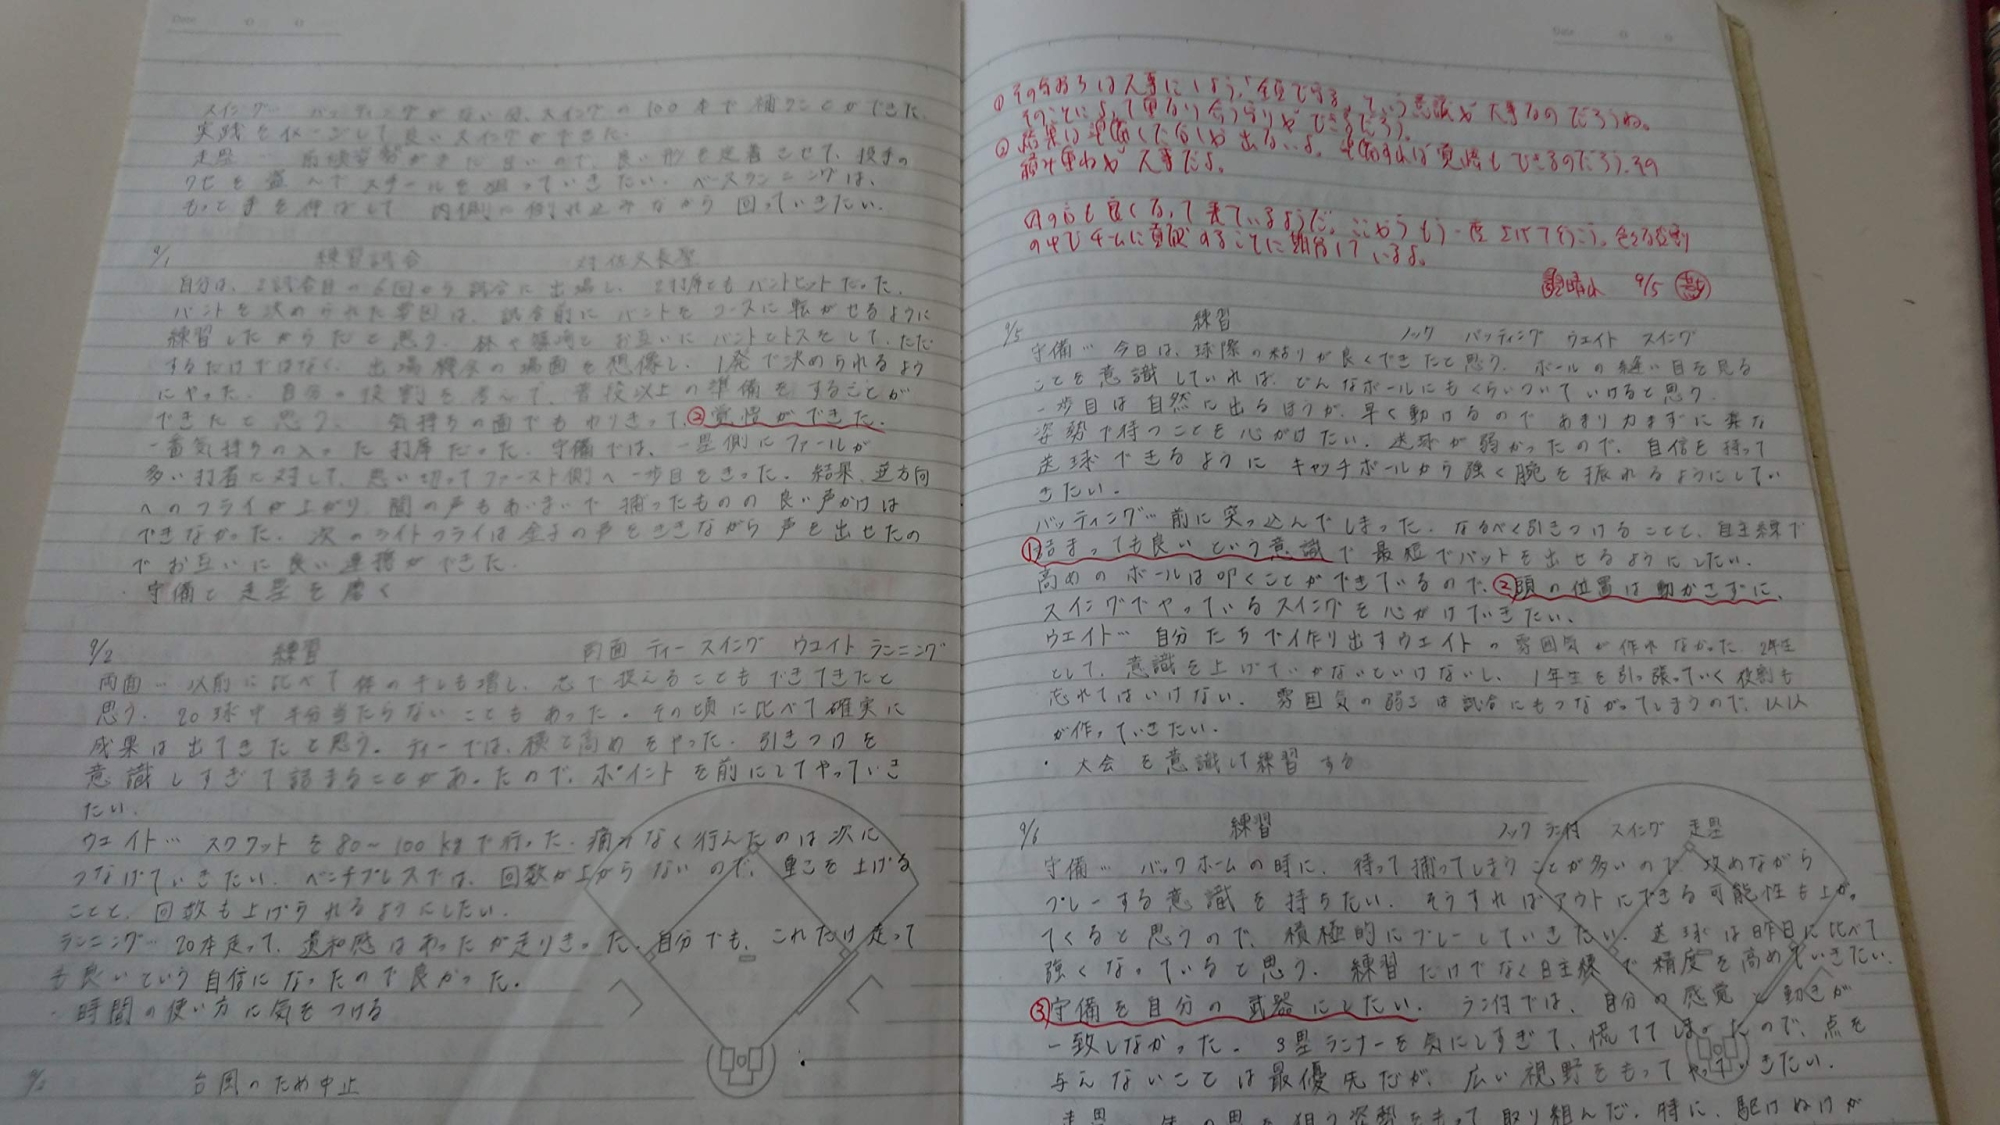 スイング… バッティングがない分、スイングの100本で補うことができた。
実践をイメージして良いスイングができた。
走塁…
クセを盗んでスチールを狙っていきたい。ベースランニングは、
もっと手を伸ばして 内側に倒れ込みながら 回っていきたい。
9/1 練習試合
自分は、2試合目の6回から試合に出場し、2打席ともバントヒットだった。
バントを決められた要因は、試合前にバントをコースに転がせるように
練習したからだと思う。 お互いにバントとトスをして、ただ
するだけではなく、出場機会の場面を想像し、1発で決められるよう
にやった。自分の役割を考えて、普段以上の準備をすることが
できたと思う。 気持ちの面でもやりきって、②覚悟ができた。
一番気持ちの入った打席だった。守備では、一塁側にファールが
多い打者に対して、思い切ってファースト側へ一歩目をきった。結果、逆方向
へのフライが上がり、間の声もあいまいで捕ったものの良い声かけは
できなかった。次のライトフライは金子の声をききながら声を出せたの
でお互いに良い連携ができた。
・守備と走塁を磨く
9/2 練習 両面 ティー スイング ウエイト ランニング
両面… 以前に比べて体のキレも増し、芯で捉えることもできてきたと
思う。20球中半分当たらないこともあった。その頃に比べて確実に
成果は出てきたと思う。ティーでは、横と高めをやった。引きつけを
意識しすぎて詰まることがあったので、ポイントを前にしてやっていき
たい。
ウエイト… スクワットを80~100kgで行った。痛みなく行えたのは次に
つなげていきたい。ベンチプレスでは、回数が上がらないので、重さを上げる
ことと、回数も上げられるようにしたい。
ランニング… 20本走って、違和感はあったが走りきった。自分でも、これだけ走って
も良いという自信になったので良かった。
・時間の使い方に気をつける
台風のため中止
① その気持ちは大事にしよう。 という意識が大事なのだろうね。
そのことによって
② 結果は準備した分しか出ないよ。準備すれば覚悟もできるのだろう。その
積み重ねが大事だよ。
良くなって来ているようだ。ここからもう一度上げて行こう。
の中でチームに貢献することに期待しているよ。
9/5
9/5 練習 ノック バッティング ウエイト スイング
守備… 今日は、球際の粘りが良くできたと思う。ボールの縫い目を見る
ことを意識していれば、どんなボールにもくらいついていけると思う。
一歩目は自然に出るほうが、早く動けるのであまり力まずに楽な
姿勢で待つことも心がけたい。送球が弱かったので、自信を持って
送球できるようにキャッチボールから強く腕を振れるようにしてい
きたい。
バッティング… 前に突っ込んでしまった。なるべく引きつけることと、自主練で
①詰まっても良いという意識で最短でバットを出せるようにしたい。
高めのボールは叩くことができているので、②頭の位置は動かさずに、
スイングでやっているスイングを心がけていきたい。
ウエイト… 自分たちで作り出すウエイトの雰囲気が作れなかった。2年生
として、意識を上げていかないといけないし、1年生を引っ張っていく役割も
忘れてはいけない。雰囲気の弱さは試合にもつながってしまうので、
が作っていきたい。
・大会を意識して練習する
9/6 練習 ノック ラン付 スイング 走塁
守備… バックホームの時に、待って捕ってしまうことが多いので、攻めながら
プレーする意識を持ちたい。そうすればアウトにできる可能性も上がっ
てくると思うので、積極的にプレーしていきたい。送球は昨日に比べて
強くなっていると思う。練習だけでなく自主練で精度を高めていきたい。
③守備を自分の武器にしたい。ラン付では、自分の感覚と動きが
一致しなかった。3塁ランナーを気にしすぎて、慌ててしまったので、点を
与えないことは最優先だが、広い視野をもってやっていきたい。
走塁… 先の塁を狙う姿勢をもって取り組んだ。特に、駆けぬけが